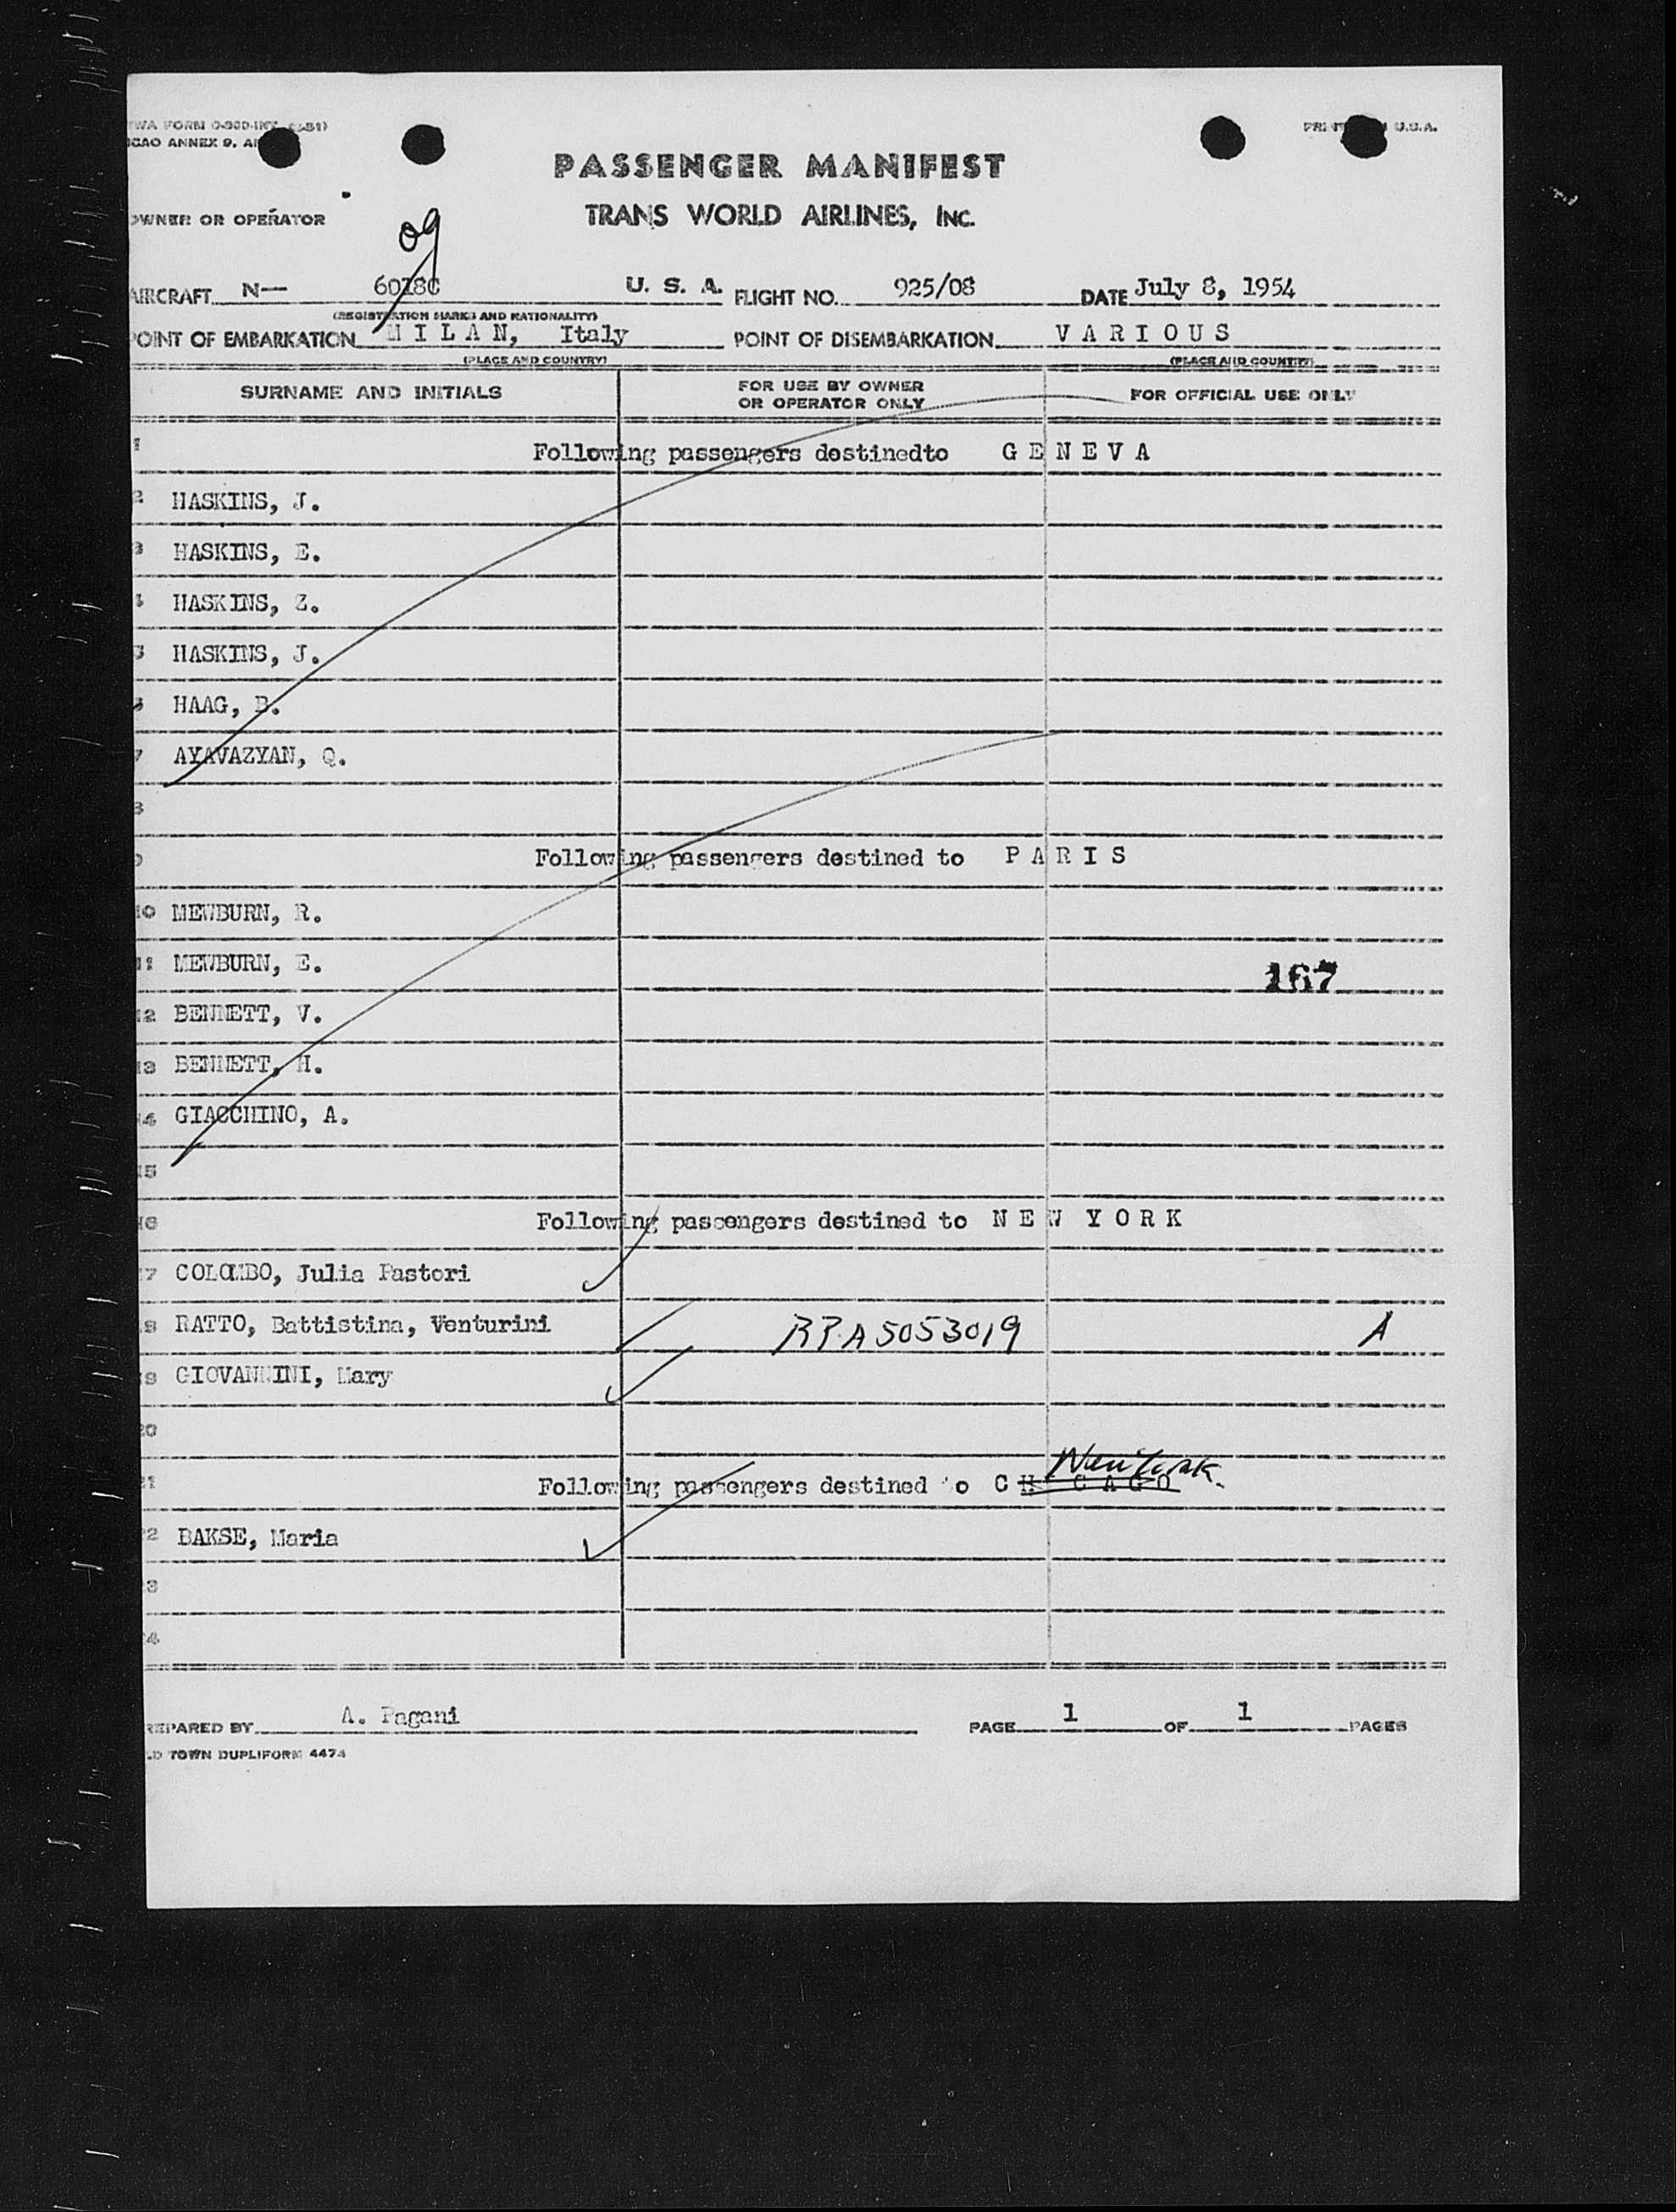 TWA FORM O-300-INT
ICAO ANNEX 9,
PRINTED IN U.S.A.
PASSENGER MANIFEST
OWNER OR OPERATOR
TRANS WORLD AIRLINES, INC.
09
AIRCRAFT N— 6018C U. S. A. FLIGHT NO. 925/08 DATE July 8, 1954
(REGISTRATION MARKS AND NATIONALITY)
POINT OF EMBARKATION M I L A N, Italy POINT OF DISEMBARKATION V A R I O U S
(PLACE AND COUNTRY) (PLACE AND COUNTRY)
SURNAME AND INITIALS FOR USE BY OWNER OR OPERATOR ONLY FOR OFFICIAL USE ONLY
1 Following passengers destinedto G E N E V A
2 HASKINS, J.
3 HASKINS, E.
4 HASKINS, Z.
5 HASKINS, J.
6 HAAG, B.
7 AYAVAZYAN, Q.
8
9 Following passengers destined to P A R I S
10 MEWBURN, R.
11 MEWBURN, E. 167
12 BENNETT, V.
13 BENNETT, H.
14 GIACCHINO, A.
15
16 Following passengers destined to N E W Y O R K
17 COLOMBO, Julia Pastori
18 RATTO, Battistina, Venturini RPA5053019 A
19 GIOVANNINI, Mary
20
New York
21 Following passengers destined to C H I C A G O
22 BAKSE, Maria
23
24
PREPARED BY A. Pagani PAGE 1 OF 1 PAGES
OLD TOWN DUPLIFORM 4474